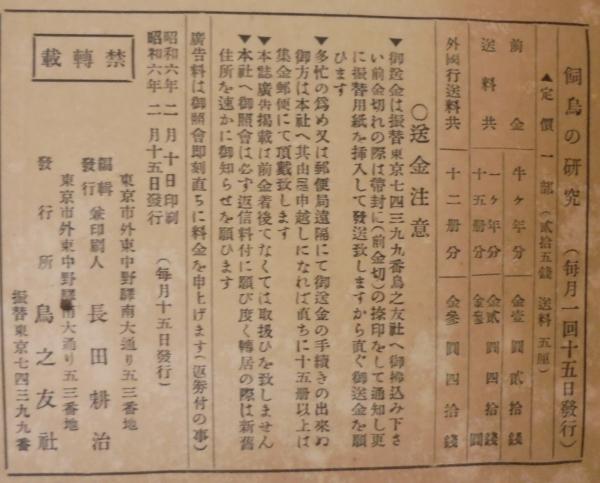 飼鳥の研究 (毎月一回十五日發行)
▲定價一部 (貳拾五錢 送料五厘)
前金 半ヶ年分 金壹圓貳拾錢
送料共 一ヶ年分 金貳圓四拾錢
十五册分 金參圓
外國行送料共 十二册分 金參圓四拾錢
○送金注意
▼御送金は振替東京七四三九九番鳥之友社へ御拂込み下さ
い前金切れの際は帶封に(前金切)の捺印をして通知し更
に振替用紙を挿入して發送致しますから直ぐ御送金を願
ひます
▼多忙の爲め又は郵便局遠隔にて御送金の手續きの出來ぬ
御方は本社へ其由御申越しになれば直ちに十五册以上は
集金郵便にて頂戴致します
▼本誌廣告掲載は前金着後でなくては取扱ひを致しません
▼本社へ御照會は必ず返信料付に願ひ度く轉居の際は新舊
住所を速かに御知らせを願ひます
廣告料は御照會即刻直ちに料金を申上げます(返券付の事)
昭和六年二月十日印刷
昭和六年二月十五日發行 (毎月十五日發行)
東京市外東中野驛南大通り五三番地
編輯發行兼印刷人 長田耕治
東京市外東中野驛南大通り五三番地
發行所 鳥之友社
振替東京七四三九九番
禁轉載